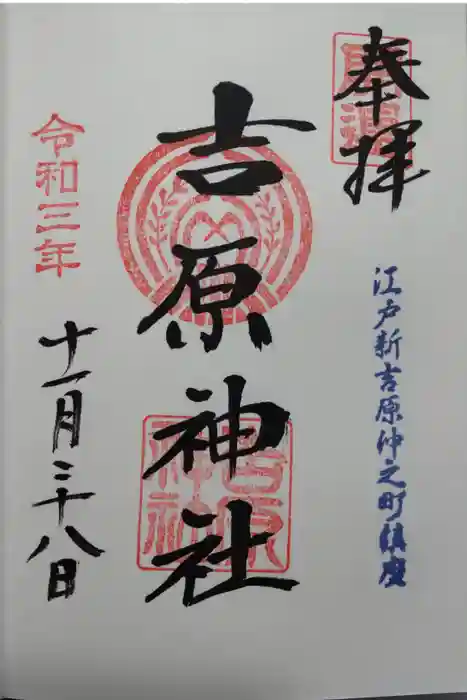 奉拝
江戸新吉原仲之町鎮座
吉原神社
吉原神社
令和三年
十一月二十八日